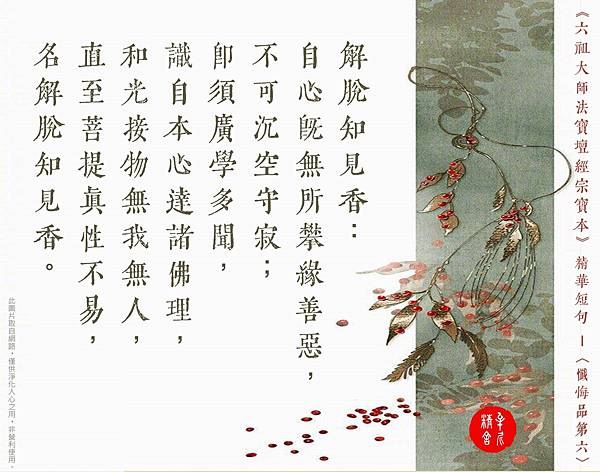 《六祖大師法寶壇經宗寶本》精華短句－〈懺悔品第六〉
解脫知見香：
自心既無所攀緣善惡，
不可沉空守寂；
即須廣學多聞，
識自本心達諸佛理，
和光接物無我無人，
直至菩提真性不易，
名解脫知見香。
此圖片取自網路，僅供淨化人心之用，非營利使用。